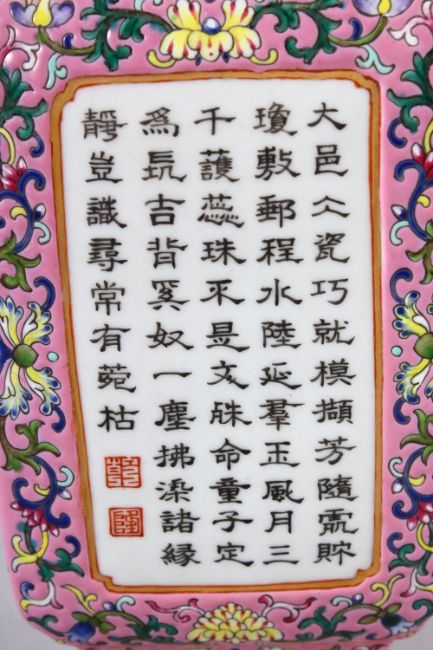 大邑仌瓷巧就模擷芳隨處貯
瓊敷郵程水陸延羣玉風月三
千護蕊珠不是文殊命童子定
爲長吉背奚奴一塵拂染諸緣
靜豈識尋常有菀枯
乾
隆